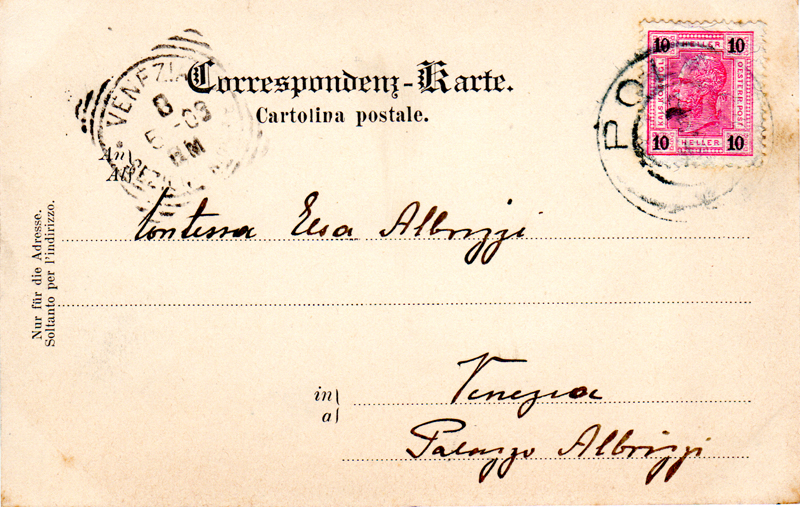 Correspondenz-Karte.
Cartolina postale.
10 HELLER 10
KAIS. KÖNIGL. OESTERR. POST
10 HELLER 10
VENEZIA
8
5-03
An
All
Contessa Elsa Albrizzi
Nur für die Adresse.
Soltanto per l'indirizzo.
in
a
Venezia
Palazzo Albrizzi